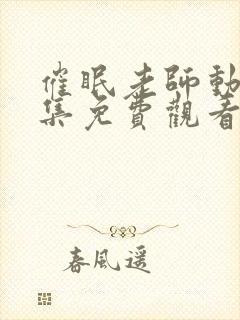 催眠老師動
集免費觀看
春風遥